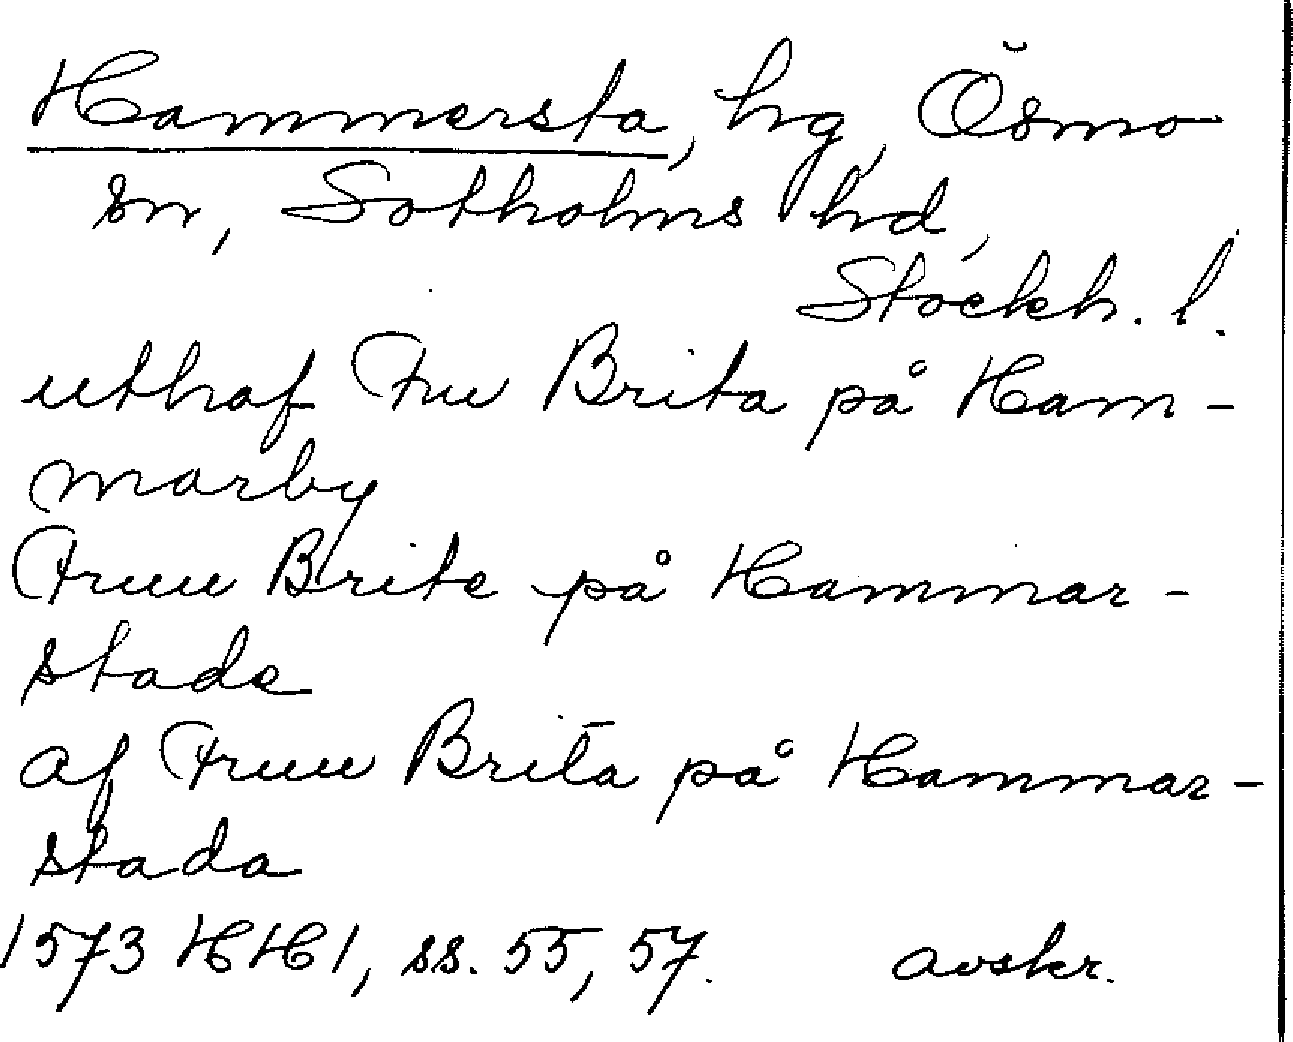 Hammersta, hg, Ösmo
sn, Sotholms hd,
Stockh. l.
uthaf Fru Brita på Ham-
marby
Fruu Brite på Hammar-
stade
af Fruu Brita på Hammar-
stada
1573 HH1, ss. 55, 57. avskr.